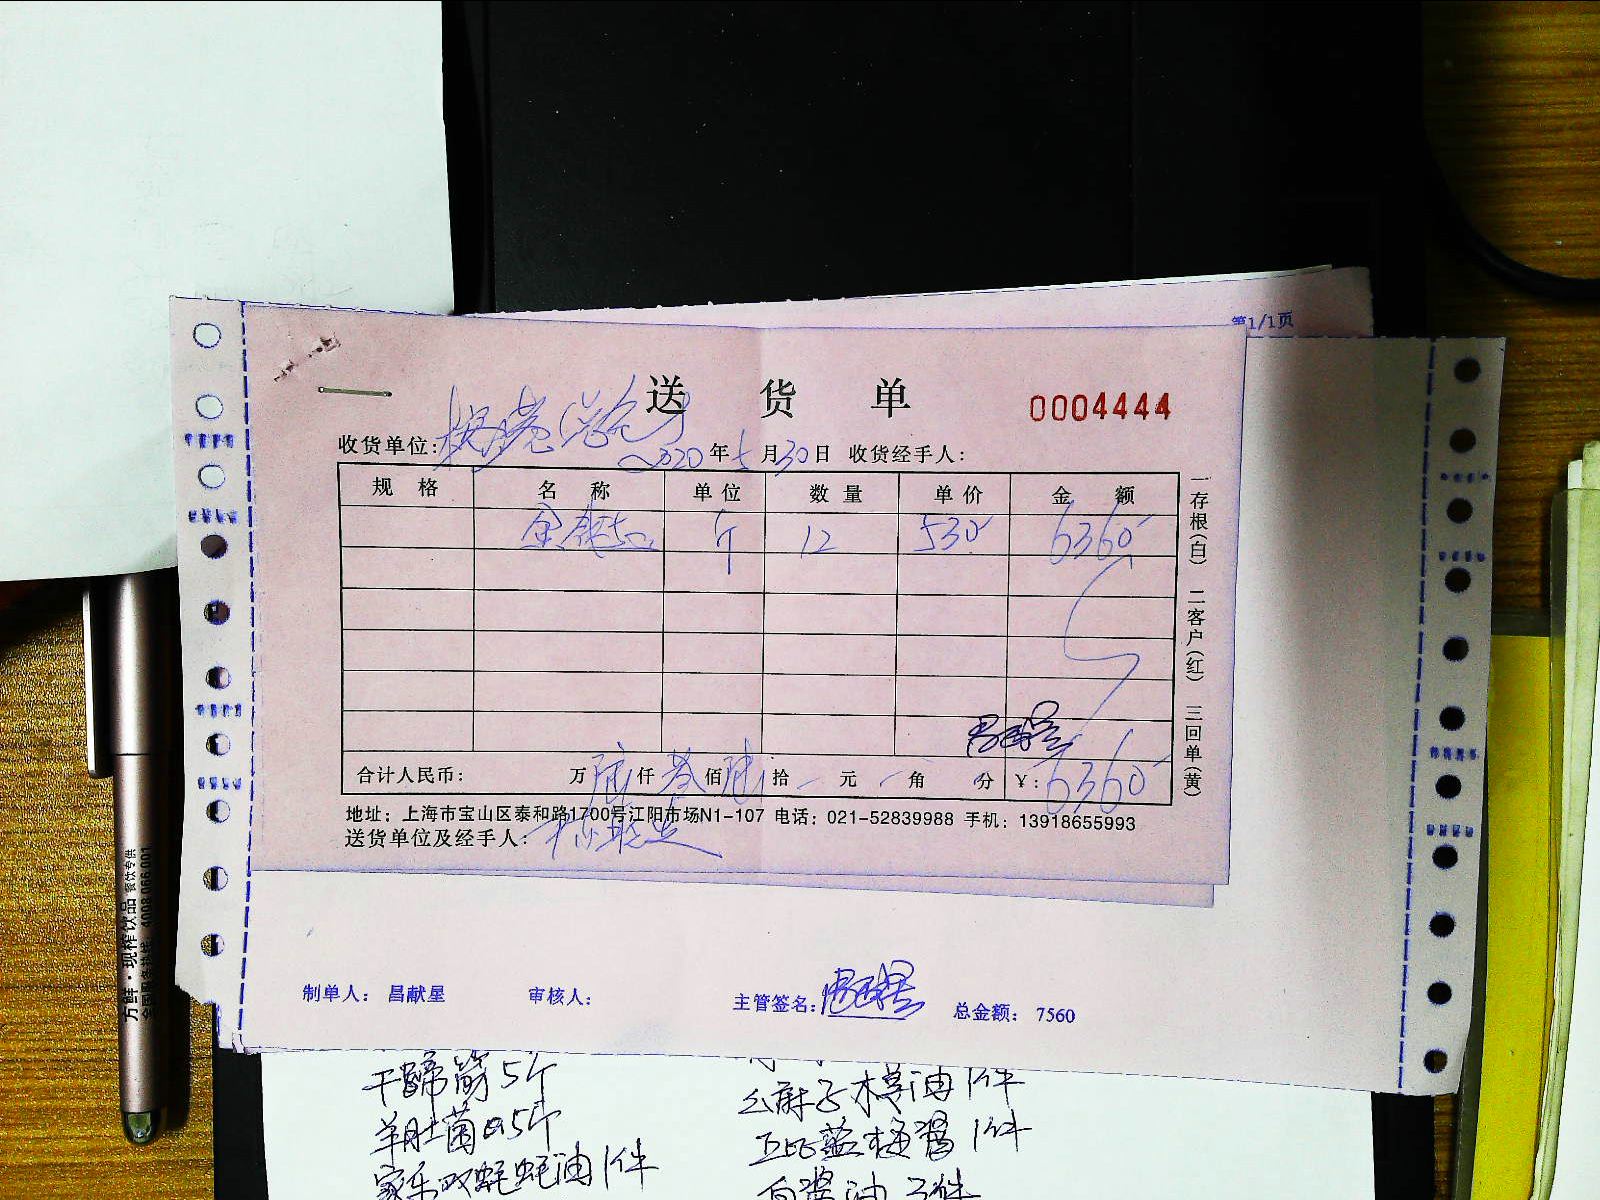 第1/1页
送 货 单
0004444
收货单位:
2020年5月30日 收货经手人:
规 格 名 称 单位 数量 单价 金 额
斤 12 530 6360
一存根(白) 二客户(红) 三回单(黄)
合计人民币: 万陆仟叁佰陆拾 元 角 分 ¥:6360
地址:上海市宝山区泰和路1700号江阳市场N1-107 电话:021-52839988 手机:13918655993
送货单位及经手人:
制单人: 昌献星 审核人: 主管签名: 总金额: 7560
干蹄筋5斤
羊肚菌0.5斤
家乐双蚝蚝油1件
幺麻子木姜油1件
蓝梅酱1件
白酱油
方鲜·现榨饮品 餐饮专供
全国服务热线:4008-066-001